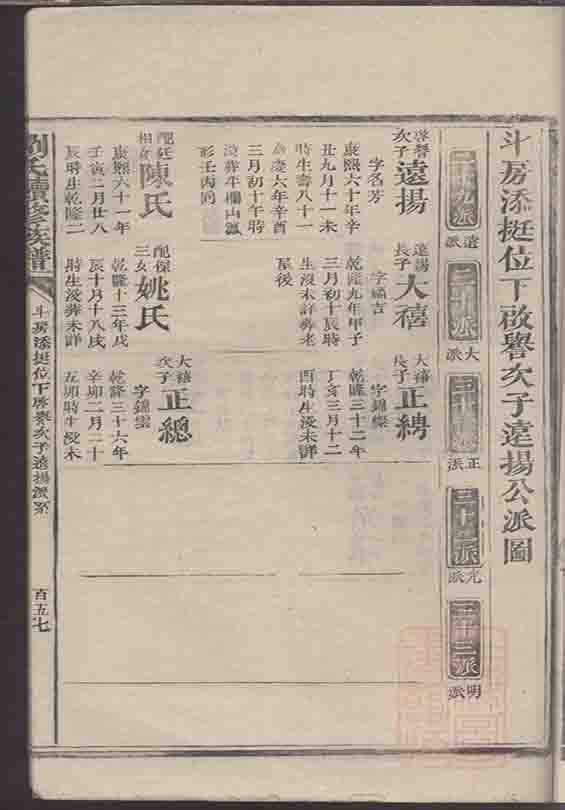 斗房添挺位下啟譽次子遠揚公派圖
二十九派
遠派
三十派
大派
正派
三十二派
光派
三十三派
明派
啓譽
次子
遠揚
字名芳
康熙六十年辛
丑九月十一未
時生壽八十一
嘉慶六年辛酉
三月初十午時
沒葬牛欄山
形壬丙同
配廷
相女
陳氏
康熙六十一年
壬寅二月廿八
辰時生乾隆二
遠揚
長子
大禧
字福吉
乾隆九年甲子
三月初十辰時
生沒未詳葬老
屋後
配傑
三女
姚氏
乾隆十三年戊
辰十月十八戌
時生沒葬未詳
大禧
長子
正綉
字錦燦
乾隆三十二年
丁亥三月十二
酉時生沒未詳
大禧
次子
正總
字錦雲
乾隆三十六年
辛卯二月二十
五卯時生沒未
劉氏續修族譜
斗房添挺位下啓譽次子遠揚派系
百五七